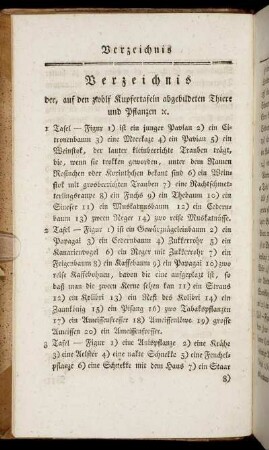 Verzeichnis
Verzeichnis
der, auf den zwölf Kupfertafeln abgebildeten Thiere
und Pflanzen ꝛc.
1 Tafel — Figur 1) ist ein junger Pavian 2) ein Ci-
tronenbaum 3) eine Meerkaze 4) ein Pavian 5) ein
Weinstok, der lauter kleinberichte Trauben trägt,
die, wenn sie troken geworden, unter dem Namen
Rosinchen oder Korinthchen bekant sind 6) ein Wein-
stok mit grosberichten Trauben 7) eine Nachtschmet-
terlingsraupe 8) ein Fuchs 9) ein Theebaum 10) ein
Sineser 11) ein Muskatnusbaum 12) ein Cedern-
baum 13) zween Neger 14) zwo reife Muskatnüsse.
2 Tafel — Figur 1) ist ein Gewürznägeleinbaum 2) ein
Papagai 3) ein Cedernbaum 4) ein Zukkerrohr 5) ein
Kanarienvogel 6) ein Neger mit Zukkerrohr 7) ein
Feigenbaum 8) ein Kaffebaum 9) ein Papagai 10) zwo
reife Kaffebohnen, davon die eine aufgeplazt ist, so
daß man die zween Kerne sehen kan 11) ein Straus
12) ein Kolibri 13) ein Nest des Kolibri 14) ein
Zaunkönig 15) ein Pisang 16) zwo Tabakspflanzen
17) ein Ameissenfresser 18) ein Ameissenlöwe 19) grosse
Ameissen 20) ein Ameissenfresser.
3 Tafel — Figur 1) eine Anispflanze 2) eine Krähe
3) eine Aelster 4) eine nakte Schnekke 5) eine Fenchel-
pflanze 6) eine Schnekke mit dem Haus 7) ein Staar
8)